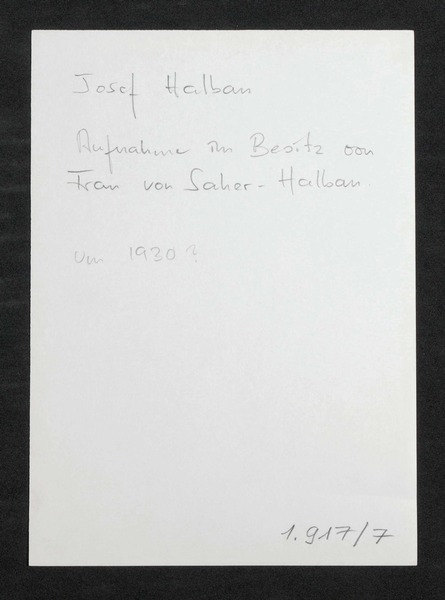 Josef Halban
Aufnahme im Besitz von
Frau von Saher-Halban
um 1930?
1.917/7